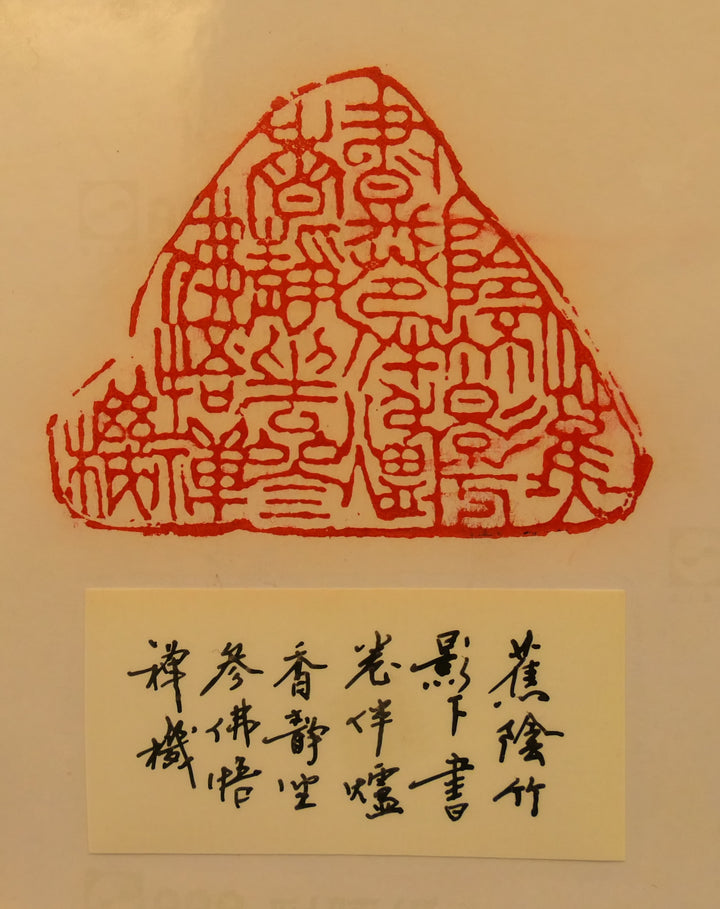 蕉
陰竹影下
書卷伴爐
香靜坐參
佛悟禪
機
蕉陰竹
影下書
卷伴爐
香靜坐
參佛悟
禪機